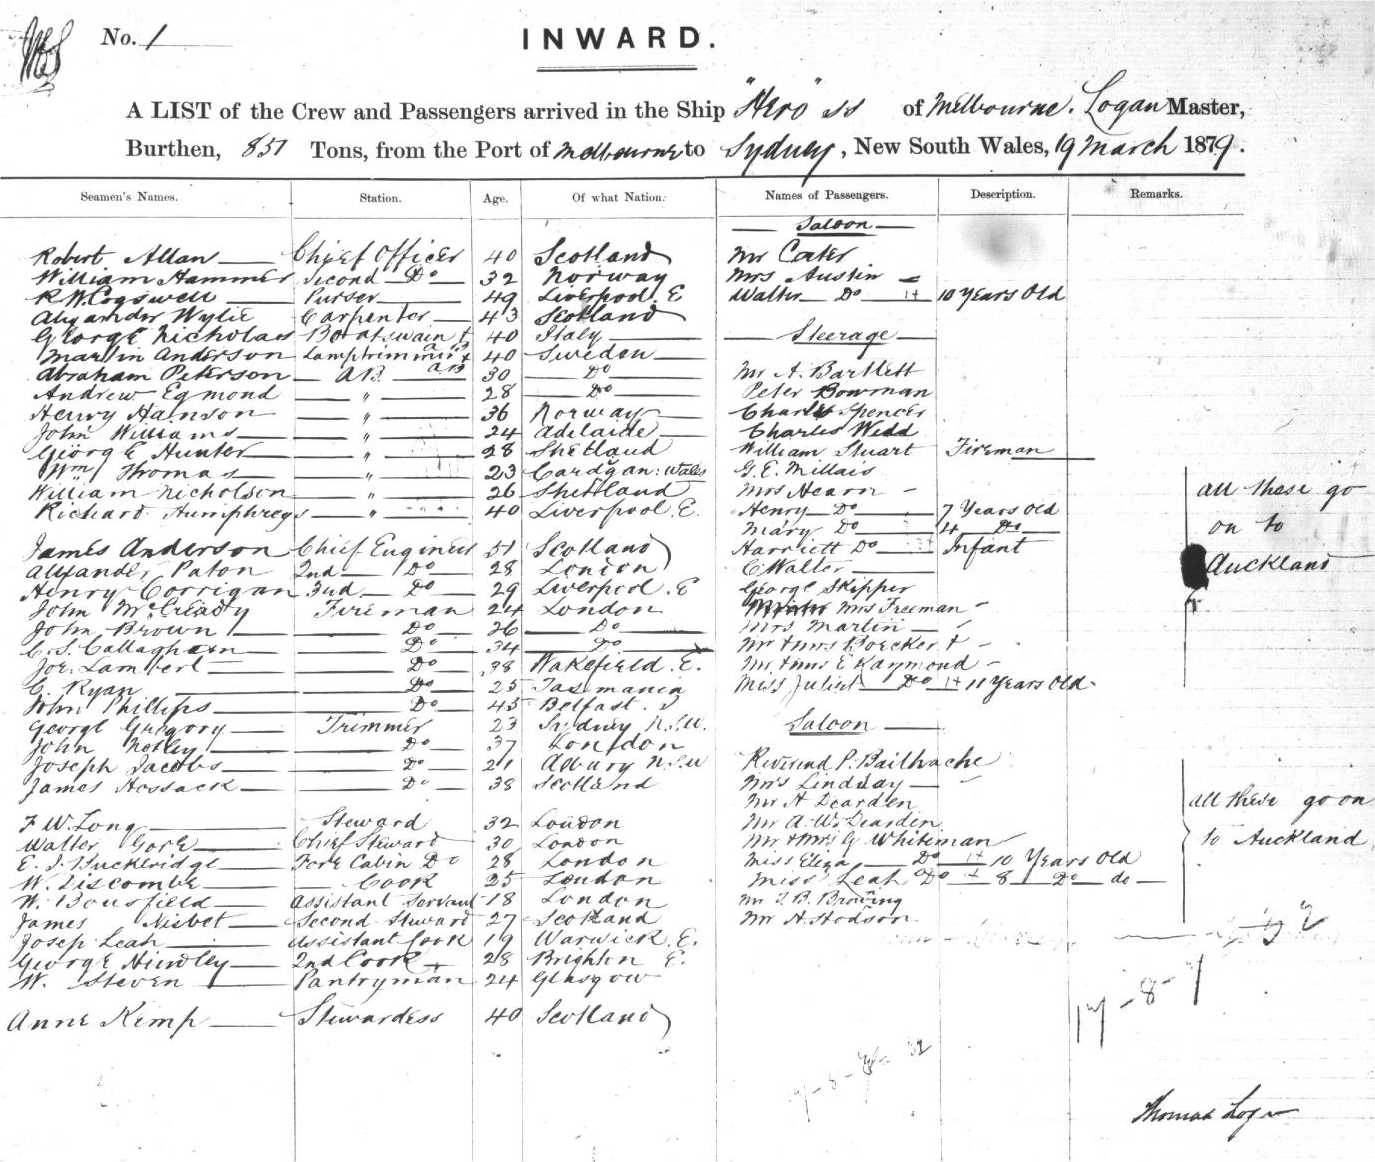 No. 1
INWARD.
A LIST of the Crew and Passengers arrived in the Ship "Hero" ss of Melbourne. Logan Master,
Burthen, 851 Tons, from the Port of Melbourne to Sydney, New South Wales, 19 March 1879.
Seamen's Names. Station. Age. Of what Nation. Names of Passengers. Description. Remarks.
Saloon
Robert Allan Chief Officer 40 Scotland Mr Cater
William Hammer Second Do 32 Norway Mrs Austin
R W Cogswell Purser 49 Liverpool. E Walter Do 10 Years Old
Alexander Wylie Carpenter 43 Scotland
George Nicholas Boatswain & AB 40 Italy Steerage
Martin Anderson Lamptrimmer & AB 40 Sweden
Abraham Peterson AB 30 Do Mr A. Bartlett
Andrew Egmond " 28 Do Peter Bowman
Henry Hainson " 36 Norway Charles Spencer
John Williams " 24 Adelaide Charles Wedd
George Hunter " 28 Shetland William Stuart Fireman
Wm Thomas " 23 Cardigan: Wales G. E. Millais
William Nicholson " 26 Shetland Mrs Hearn all these go
Richard Humphreys " 40 Liverpool. E. Henry Do 7 Years Old
Mary Do 4 Do on to
James Anderson Chief Engineer 51 Scotland Harriett Do Infant
Alexander Paton 2nd Do 28 London C Walter Auckland
Henry Corrigan 3rd Do 29 Liverpool. E George Skipper
John McCready Fireman 24 London Mrs Freeman
John Brown Do 26 Do Mrs Martin
C. S. Callaghan Do 34 Do Mr & Mrs Boecker &
Joe. Lambert Do 38 Wakefield. E. Mr & Mrs E Raymond
C. Ryan Do 25 Tasmania Miss Juliet Do 11 Years Old
John Phillips Do 45 Belfast. I
George Gregory Trimmer 23 Sydney N.S.W. Saloon
John Notley Do 37 London
Joseph Jacobs Do 21 Albury N.S.W Reverend P. Bailhache
James Hossack Do 38 Scotland Mrs Lindsay
Mr H Dearden all these go on
F W. Long Steward 32 London Mr A. W. Dearden
Walter Gore Chief Steward 30 London Mr & Mrs G. Whiteman to Auckland
E. J. Buckeridge Fore Cabin Do 28 London Miss Eliza Do 10 Years Old
W. Liscombe Cook 25 London Miss Leah Do 8 Do do
W. Bousfield Assistant Servant 18 London Mr J. B. Browing
James Nisbet Second Steward 27 Scotland Mr H. Hodson
Josep Leah Assistant Cook 19 Warwick. E.
George Hindley 2nd Cook 28 Brighton E.
W. Steven Pantryman 24 Glasgow
Anne Kemp Stewardess 40 Scotland
17-8-7
Thomas Logan